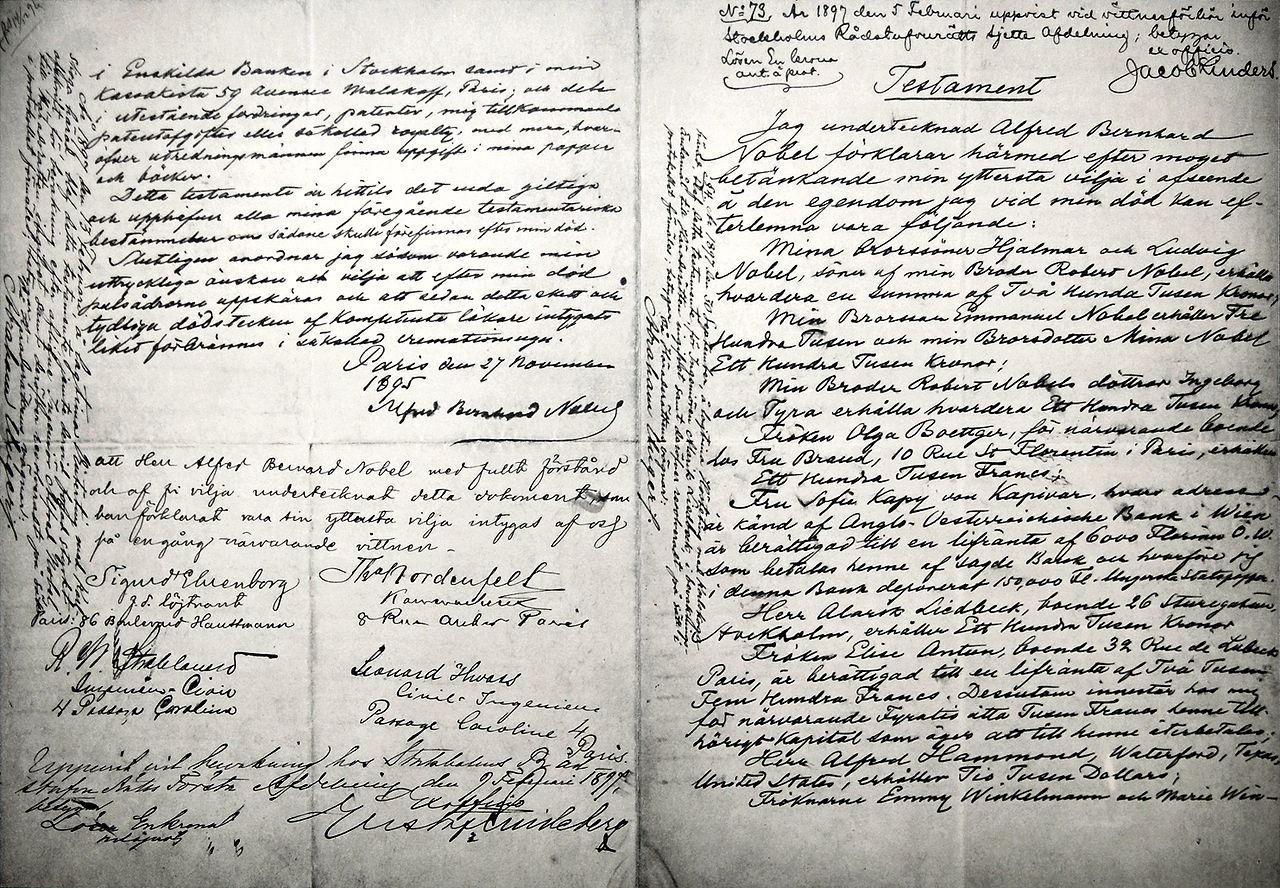 i Enskilda Banken i Stockholm samt i min
kassakista 59 Avenue Malakoff, Paris; och dels
i utestående fordringar, patenter, mig tillkommande
patentafgifter eller såkallad royalty, med mera, hvar-
utredningsmännen finna uppgift i mina papper
och böcker.
Detta testamente är hittils det enda giltiga
och upphefver alla mina föregående testamentariska
bestämmelser om sådane skulle förefinnas efter min död.
Slutligen anordnar jag såsom varande min
uttryckliga önskan och vilja att efter min död
pulsådrorna uppskäras och att sedan detta skett och
tydliga dödstecken af kompetenta läkare intygats
liket förbrännes i såkallad cremationsugn.
Paris den 27 November
1895
Alfred Bernhard Nobel
att Herr Alfred Bernhard Nobel med fullt förstånd
och af fri vilja undertecknat detta dokument, som
han förklarat vara sin yttersta vilja intygas af oss
på en gång närvarande vittnen -
Sigurd Ehrenborg
f.d. löjtnant
Paris: 86 Boulevard Haussmann
Ths Nordenfelt
8 Rue Auber Paris
R. W. Strehlenert
Ingeniör-Civil
4 Passage Caroline
Leonard Hwass
Civil-Ingeniör
Passage Caroline 4
Paris.
Uppvist vid bevakning hos Stockholms
Rådstufvu Rätts Första Afdelning den 9 Februari 1897,
betygar
Ex officio
Lösen En krona
No 73. År 1897 den 5 Februari uppvist vid vittnesförhör inför
Stockholms Rådstufvurätts sjette Afdelning; betygar
ex officio.
Lösen En krona
Testament
Jag undertecknad Alfred Bernhard
Nobel förklarar härmed efter moget
betänkande min yttersta vilja i afseende
å den egendom jag vid min död kan ef-
terlemna vara följande:
Mina brorsöner Hjalmar och Ludvig
Nobel, söner af min Broder Robert Nobel, erhålla
hvardera en summa af Två Hundra Tusen Kronor;
Min Brorson Emmanuel Nobel erhåller Tre
Hundra Tusen och min Brorsdotter Mina Nobel
Ett Hundra Tusen Kronor;
Min Broder Robert Nobels döttrar Ingeborg
och Tyra erhålla hvardera Ett Hundra Tusen Kronor;
Fröken Olga Boettger, för närvarande boende
hos Fru Brand, 10 Rue St Florentin i Paris, erhåller
Ett Hundra Tusen Francs;
Fru Sofie Kapy von Kapivar, hvars adress
är känd af Anglo-Oesterreichische Bank i Wien
är berättigad till en lifränta af 6000 Florins Ö.W.
som betalas henne af sagde Bank och hvarföre jag
i denna Bank deponerat 150,000 Fl. Ungerska Statspapper.
Herr Alarik Liedbeck, boende 26 Sturegatan,
Stockholm, erhåller Ett Hundra Tusen Kronor
Fröken Elise Antun, boende 32 Rue de Lubeck
Paris, är berättigad till en lifränta af Två Tusen
Fem Hundra Francs. Dessutom innestår hos mig
för närvarande Fyratio åtta Tusen Francs henne till-
hörigt Kapital som äger att till henne återbetalas;
Herr Alfred Hammond, Waterford, Texas,
United States, erhåller Tio Tusen Dollars;
Fröknarne Emmy Winkelmann och Marie Win-